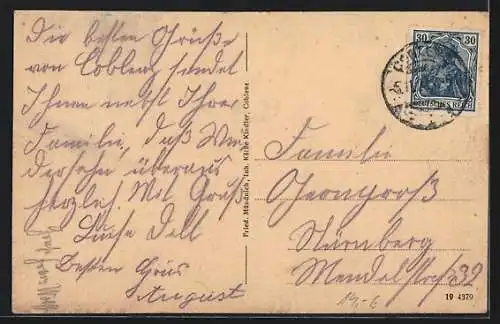 Die besten Grüße
von Coblenz sendet
Ihnen nebst Ihrer
Familie, daß Wie-
dersehn überaus
herzlich Mit Gruß
Luise Dell
Besten Grus
August
Fried. Mündnich, Inh. Käthe Kindler, Coblenz
30 30
DEUTSCHES REICH
Familie
Nürnberg
Mendelstraße 32
19 4379